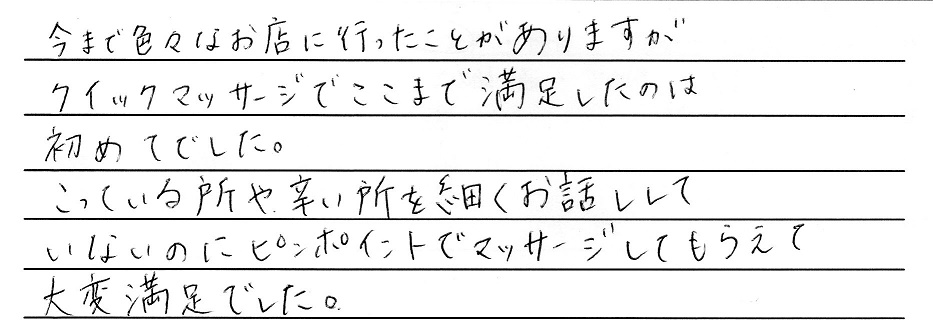 今まで色々なお店に行ったことがありますが
クイックマッサージでここまで満足したのは
初めてでした。
こっている所や、辛い所を細くお話しして
いないのにピンポイントでマッサージしてもらえて
大変満足でした。